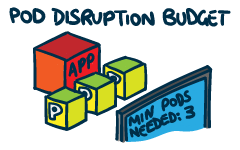 POD DISRUPTION BUDGET
APP
P
P
P
MIN PODS
NEEDED: 3